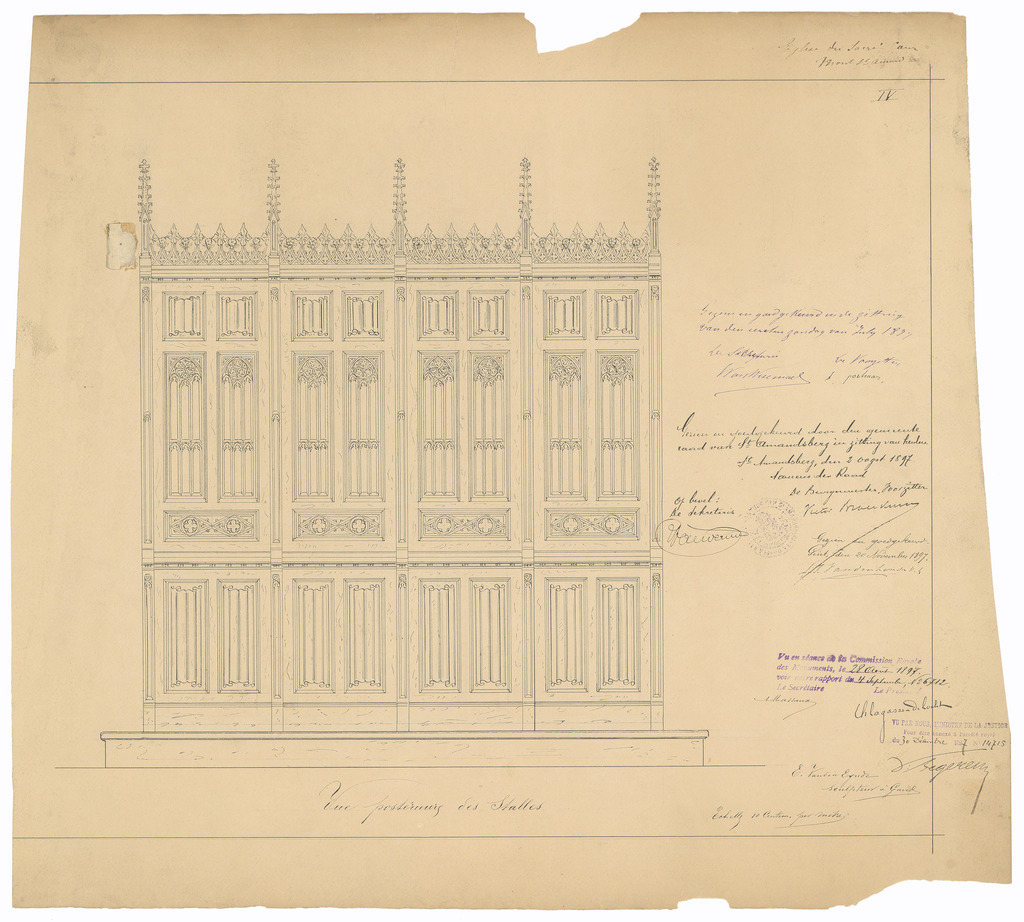 Eglise du Sacré Cœur
Mont St Amand
IV
Gezien en goedgekeurd in de zitting
van den eersten zondag van July 1897
De Secretaris
De Voorzitter
Gezien en goedgekeurd door den gemeente
raad van St Amandsberg in zitting van heden
St Amandsberg, den 2 oogst 1897
Namens den Raad
De Burgemeester, Voorzitter
Op bevel:
De Sekretaris
Gezien en goedgekeurd,
Gent, den 20 November 1897.
Vu en séance de la Commission Royale
des Monuments, le 28 Août 1897.
voir notre rapport du 4 Septembre, 
Le Secrétaire
Le Président
VU PAR NOUS, MINISTRE DE LA JUSTICE
Pour être annexé à l'arrêté royal
du 30 Décembre 1897 n° 14715
E. Vanden Eynde
sculpteur à Gand
Vue postérieure des Stalles
Echelle 10 Centim. par mètre